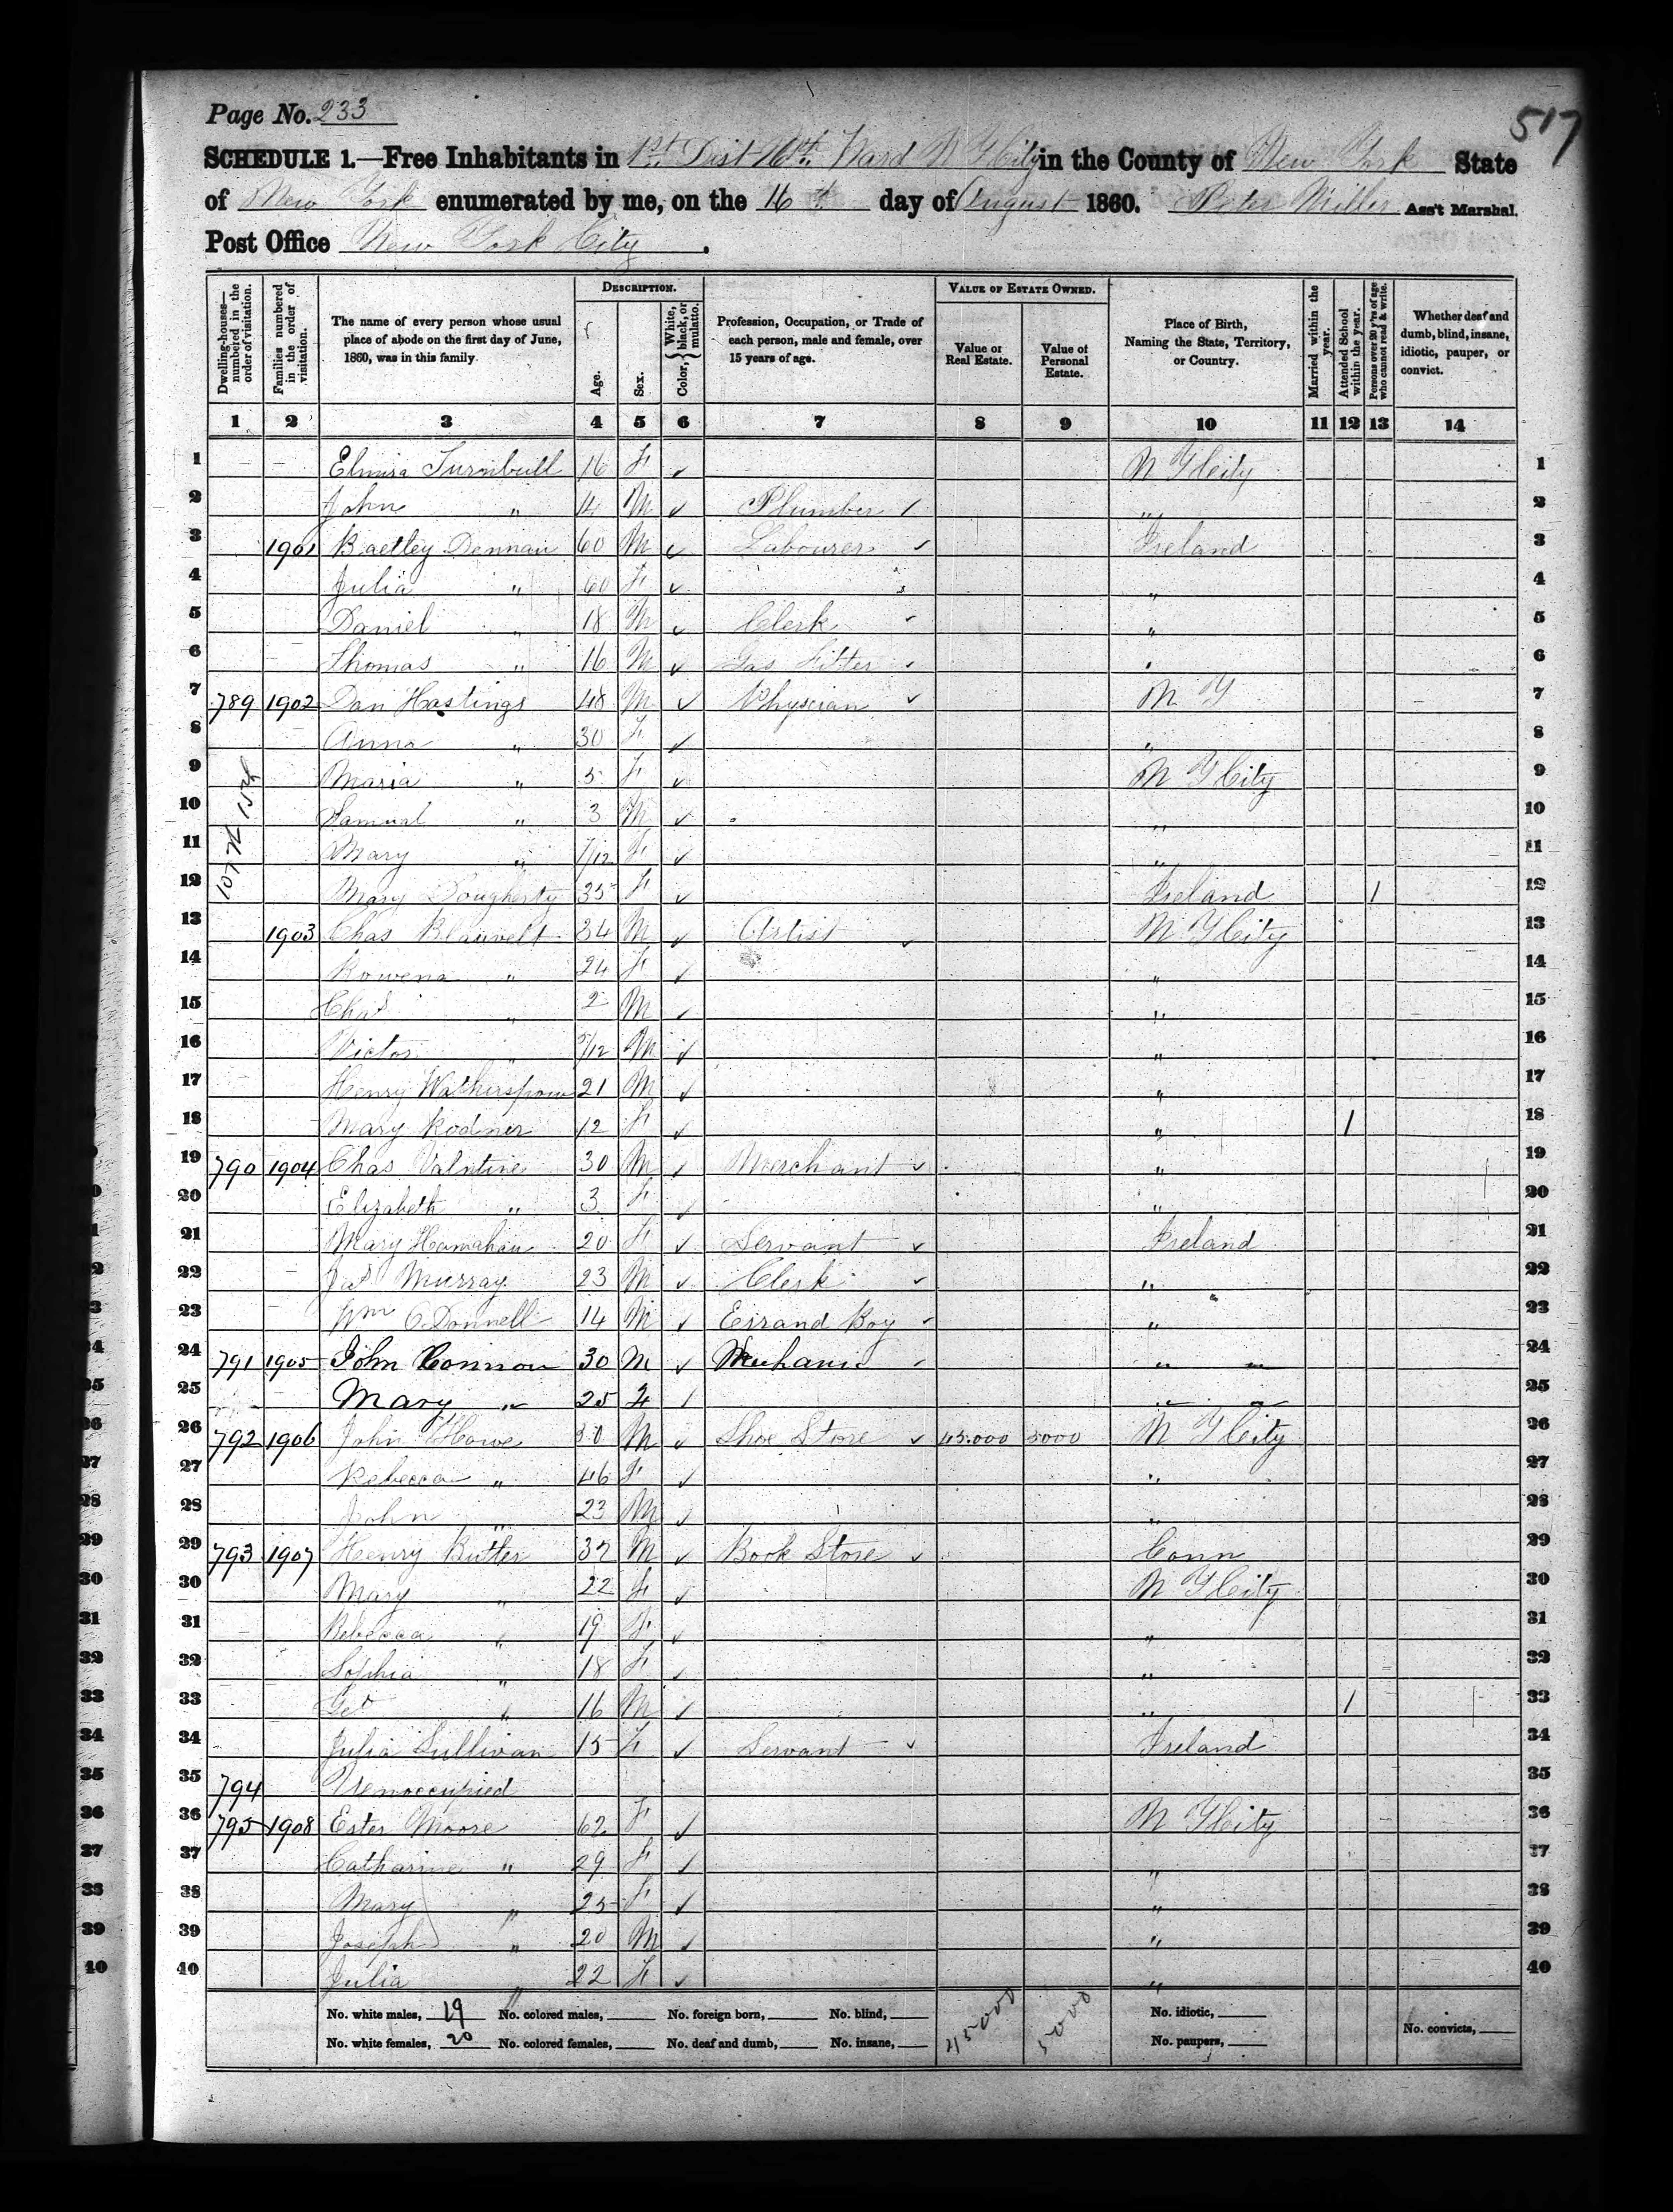 Page No. 233
517
SCHEDULE 1.—Free Inhabitants in 1st Dist 16th Ward N Y City in the County of New York State
of New York enumerated by me, on the 16th day of August 1860. Peter Miller Ass't Marshal.
Post Office New York City.
Dwelling-houses—numbered in the order of visitation.
Families numbered in the order of visitation.
The name of every person whose usual place of abode on the first day of June, 1860, was in this family.
DESCRIPTION.
Age.
Sex.
Color, { White, black, or mulatto.
Profession, Occupation, or Trade of each person, male and female, over 15 years of age.
VALUE OF ESTATE OWNED.
Value of Real Estate.
Value of Personal Estate.
Place of Birth, Naming the State, Territory, or Country.
Married within the year.
Attended School within the year.
Persons over 20 y'rs of age who cannot read & write.
Whether deaf and dumb, blind, insane, idiotic, pauper, or convict.
1 2 3 4 5 6 7 8 9 10 11 12 13 14
1 Elmira Turnbull 16 F ✓ N Y City 1
2 John " 14 M ✓ Plumber ✓ " 2
3 1901 Baetley Dennan 60 M ✓ Labourer ✓ Ireland 3
4 Julia " 60 F ✓ " 4
5 Daniel " 18 M ✓ Clerk ✓ " 5
6 Thomas " 16 M ✓ Gas Fitter ✓ " 6
7 789 1902 Dan Hastings 48 M ✓ Physcian ✓ N Y 7
8 Anna " 30 F ✓ " 8
9 Maria " 5 F ✓ N Y City 9
10 Samual " 3 M ✓ " 10
11 Mary " 7/12 F ✓ " 11
107 W 15th
12 Mary Dougherty 35 F ✓ Ireland 1 12
13 1903 Chas Blauvelt 34 M ✓ Artist ✓ N Y City 13
14 Rowena " 24 F ✓ " 14
15 Chas " 2 M ✓ " 15
16 Victor " /12 M ✓ " 16
17 Henry 21 M ✓ " 17
18 Mary Rodner 12 F ✓ " 1 18
19 790 1904 Chas Valntine 30 M ✓ Merchant ✓ " 19
20 Elizabeth " 3 F ✓ " 20
21 Mary Hannahan 20 F ✓ Servant ✓ Ireland 21
22 Jas Murray 23 M ✓ Clerk ✓ " 22
23 Wm O Donnell 14 M ✓ Errand Boy ✓ " 23
24 791 1905 John Connon 30 M ✓ Mechanic ✓ " " 24
25 Mary " 25 F / " " 25
26 792 1906 John Howe 50 M ✓ Shoe Store ✓ 45.000 5000 N Y City 26
27 Rebecca " 46 F ✓ " 27
28 John " 23 M ✓ " 28
29 793 1907 Henry Butler 37 M ✓ Book Store ✓ Conn 29
30 Mary " 22 F ✓ N Y City 30
31 Rebecca " 19 F ✓ " 31
32 Sophia " 18 F ✓ " 32
33 Geo " 16 M ✓ " 1 33
34 Julia Sullivan 15 F ✓ Servant ✓ Ireland 34
35 794 Unoccupied 35
36 795 1908 Ester Moore 62 F ✓ N Y City 36
37 Catharine " 29 F ✓ " 37
38 Mary " 25 F ✓ " 38
39 Joseph " 20 M ✓ " 39
40 Julia " 22 F ✓ " 40
No. white males, 19 No. colored males, No. foreign born, No. blind, 45000 5000 No. idiotic,
No. white females, 20 No. colored females, No. deaf and dumb, No. insane, No. paupers, No. convicts,